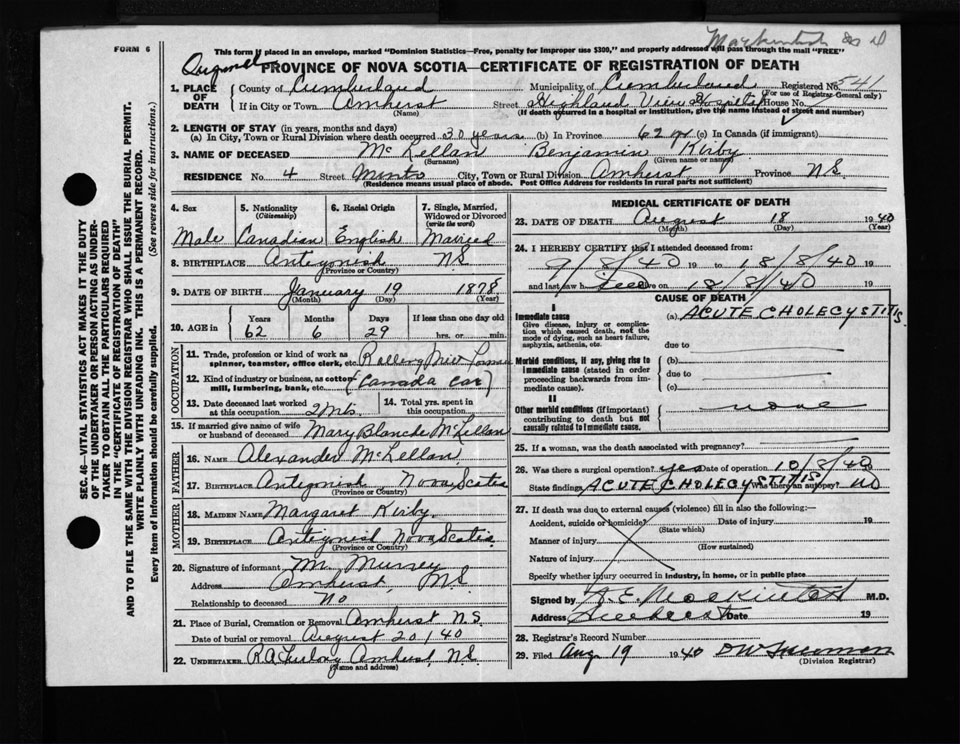 FORM 6
This form if placed in an envelope, marked "Dominion Statistics—Free, penalty for improper use $300," and properly addressed will pass through the mail "FREE"
PROVINCE OF NOVA SCOTIA—CERTIFICATE OF REGISTRATION OF DEATH
1. PLACE OF DEATH
County of Cumberland Municipality of Cumberland Registered No. 541
(For use of Registrar-General only)
If in City or Town Amherst Street Highland View Hospital House No.
(Name) (If death occurred in a hospital or institution, give the name instead of street and number)
2. LENGTH OF STAY (in years, months and days)
(a) In City, Town or Rural Division where death occurred 30 years (b) In Province 62 yr (c) In Canada (if immigrant)
3. NAME OF DECEASED McLellan Benjamin Kirby
(Surname) (Given name or names)
RESIDENCE No. 4 Street Minto City, Town or Rural Division Amherst Province N.S.
(Residence means usual place of abode. Post Office Address for residents in rural parts not sufficient)
4. Sex 5. Nationality (Citizenship) 6. Racial Origin 7. Single, Married, Widowed or Divorced (write the word)
Male Canadian English Married
8. BIRTHPLACE Antigonish N.S.
(Province or Country)
9. DATE OF BIRTH January 19 1878
(Month) (Day) (Year)
10. AGE in Years Months Days If less than one day old
62 6 29 hrs. or min.
OCCUPATION
11. Trade, profession or kind of work as spinner, teamster, office clerk, etc. Rolling Mill
12. Kind of industry or business, as cotton mill, lumbering, bank, etc. (Canada Car)
13. Date deceased last worked at this occupation 2 Mts. 14. Total yrs. spent in this occupation
15. If married give name of wife or husband of deceased Mary Blanche McLellan
FATHER
16. NAME Alexander McLellan
17. BIRTHPLACE Antigonish Nova Scotia
(Province or Country)
MOTHER
18. MAIDEN NAME Margaret Kirby
19. BIRTHPLACE Antigonish Nova Scotia
(Province or Country)
20. Signature of informant
Address Amherst, N.S.
Relationship to deceased No
21. Place of Burial, Cremation or Removal Amherst N.S.
Date of burial or removal August 20/40
22. UNDERTAKER Amherst, N.S.
(Name and address)
MEDICAL CERTIFICATE OF DEATH
23. DATE OF DEATH August 18 1940
(Month) (Day) (Year)
24. I HEREBY CERTIFY that I attended deceased from:
9/8/40 19 to 18/8/40 19
and last saw h alive on 18/8/40 19
CAUSE OF DEATH
I
Immediate cause (a) ACUTE CHOLECYSTITIS
Give disease, injury or complication which caused death, not the mode of dying, such as heart failure, asphyxia, asthenia, etc.
due to
Morbid conditions, if any, giving rise to immediate cause (stated in order proceeding backwards from immediate cause)
(b)
due to
(c)
II
Other morbid conditions (if important) contributing to death but not causally related to immediate cause.
none
25. If a woman, was the death associated with pregnancy?
26. Was there a surgical operation? yes Date of operation 10/8/40
State findings ACUTE CHOLECYSTITIS Was there an autopsy? no
27. If death was due to external causes (violence) fill in also the following:—
Accident, suicide or homicide? Date of injury 19
(State which)
Manner of injury
(How sustained)
Nature of injury
Specify whether injury occurred in industry, in home, or in public place
Signed by M.D.
Address Amherst Date 19
28. Registrar's Record Number
29. Filed Aug 19 1940
(Division Registrar)
SEC. 46—VITAL STATISTICS ACT MAKES IT THE DUTY
OF THE UNDERTAKER OR PERSON ACTING AS UNDER-
TAKER TO OBTAIN ALL THE PARTICULARS REQUIRED
IN THE "CERTIFICATE OF REGISTRATION OF DEATH"
AND TO FILE THE SAME WITH THE DIVISION REGISTRAR WHO SHALL ISSUE THE BURIAL PERMIT.
WRITE PLAINLY WITH UNFADING INK. THIS IS A PERMANENT RECORD.
Every item of information should be carefully supplied. (See reverse side for instructions.)